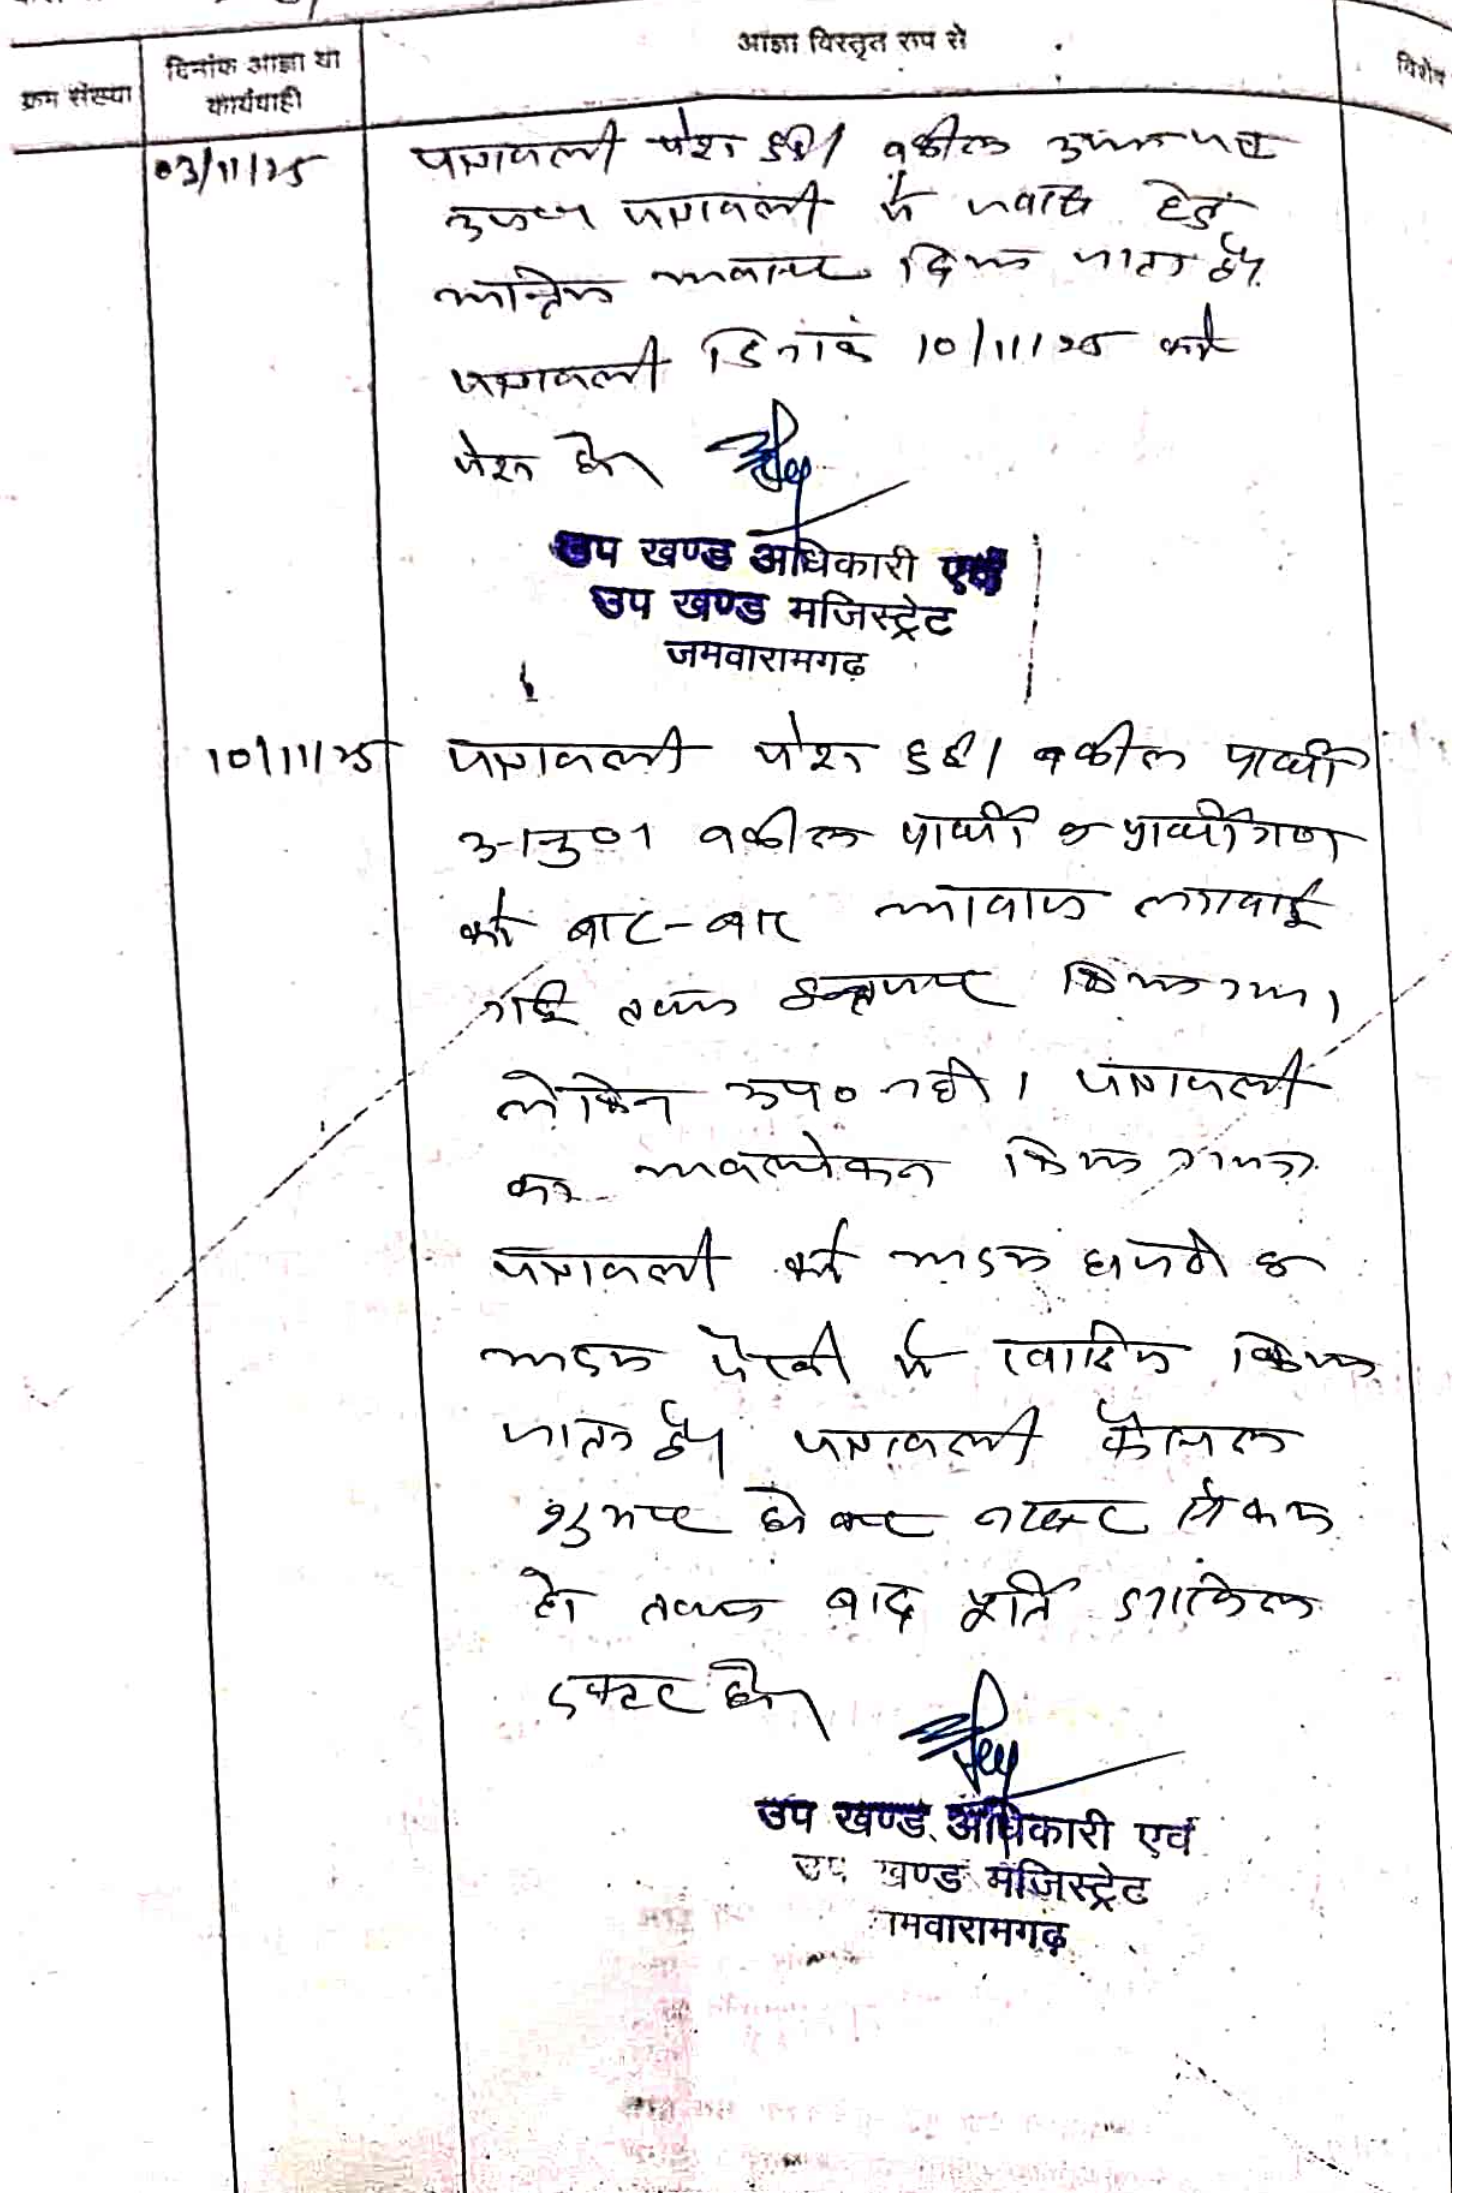 क्रम संख्या
दिनांक आज्ञा या
कार्यवाही
आज्ञा विस्तृत रूप से
विशेष
03/11/25
पत्रावली पेश हुई। वकील उभयपक्ष
उप० पत्रावली में जवाब हेतु
अन्तिम अवसर दिया जाता है।
पत्रावली दिनांक 10/11/25 को
पेश हो।
उप खण्ड अधिकारी एवं
उप खण्ड मजिस्ट्रेट
जमवारामगढ़
10/11/25
पत्रावली पेश हुई। वकील प्रार्थी
अनु० वकील प्रार्थी व प्रार्थीगण
को बार-बार आवाज लगवाई
गई तथा इन्तजार किया गया।
लेकिन उप० नही। पत्रावली
का अवलोकन किया गया।
पत्रावली को अदम हाजरी व
अदम पैरवी में खारिज किया
जाता है। पत्रावली फैसल
शुमार होकर नम्बर से कम
हो तथा बाद पूर्ति दाखिल
दफ्तर हो।
उप खण्ड अधिकारी एवं
उप खण्ड मजिस्ट्रेट
जमवारामगढ़